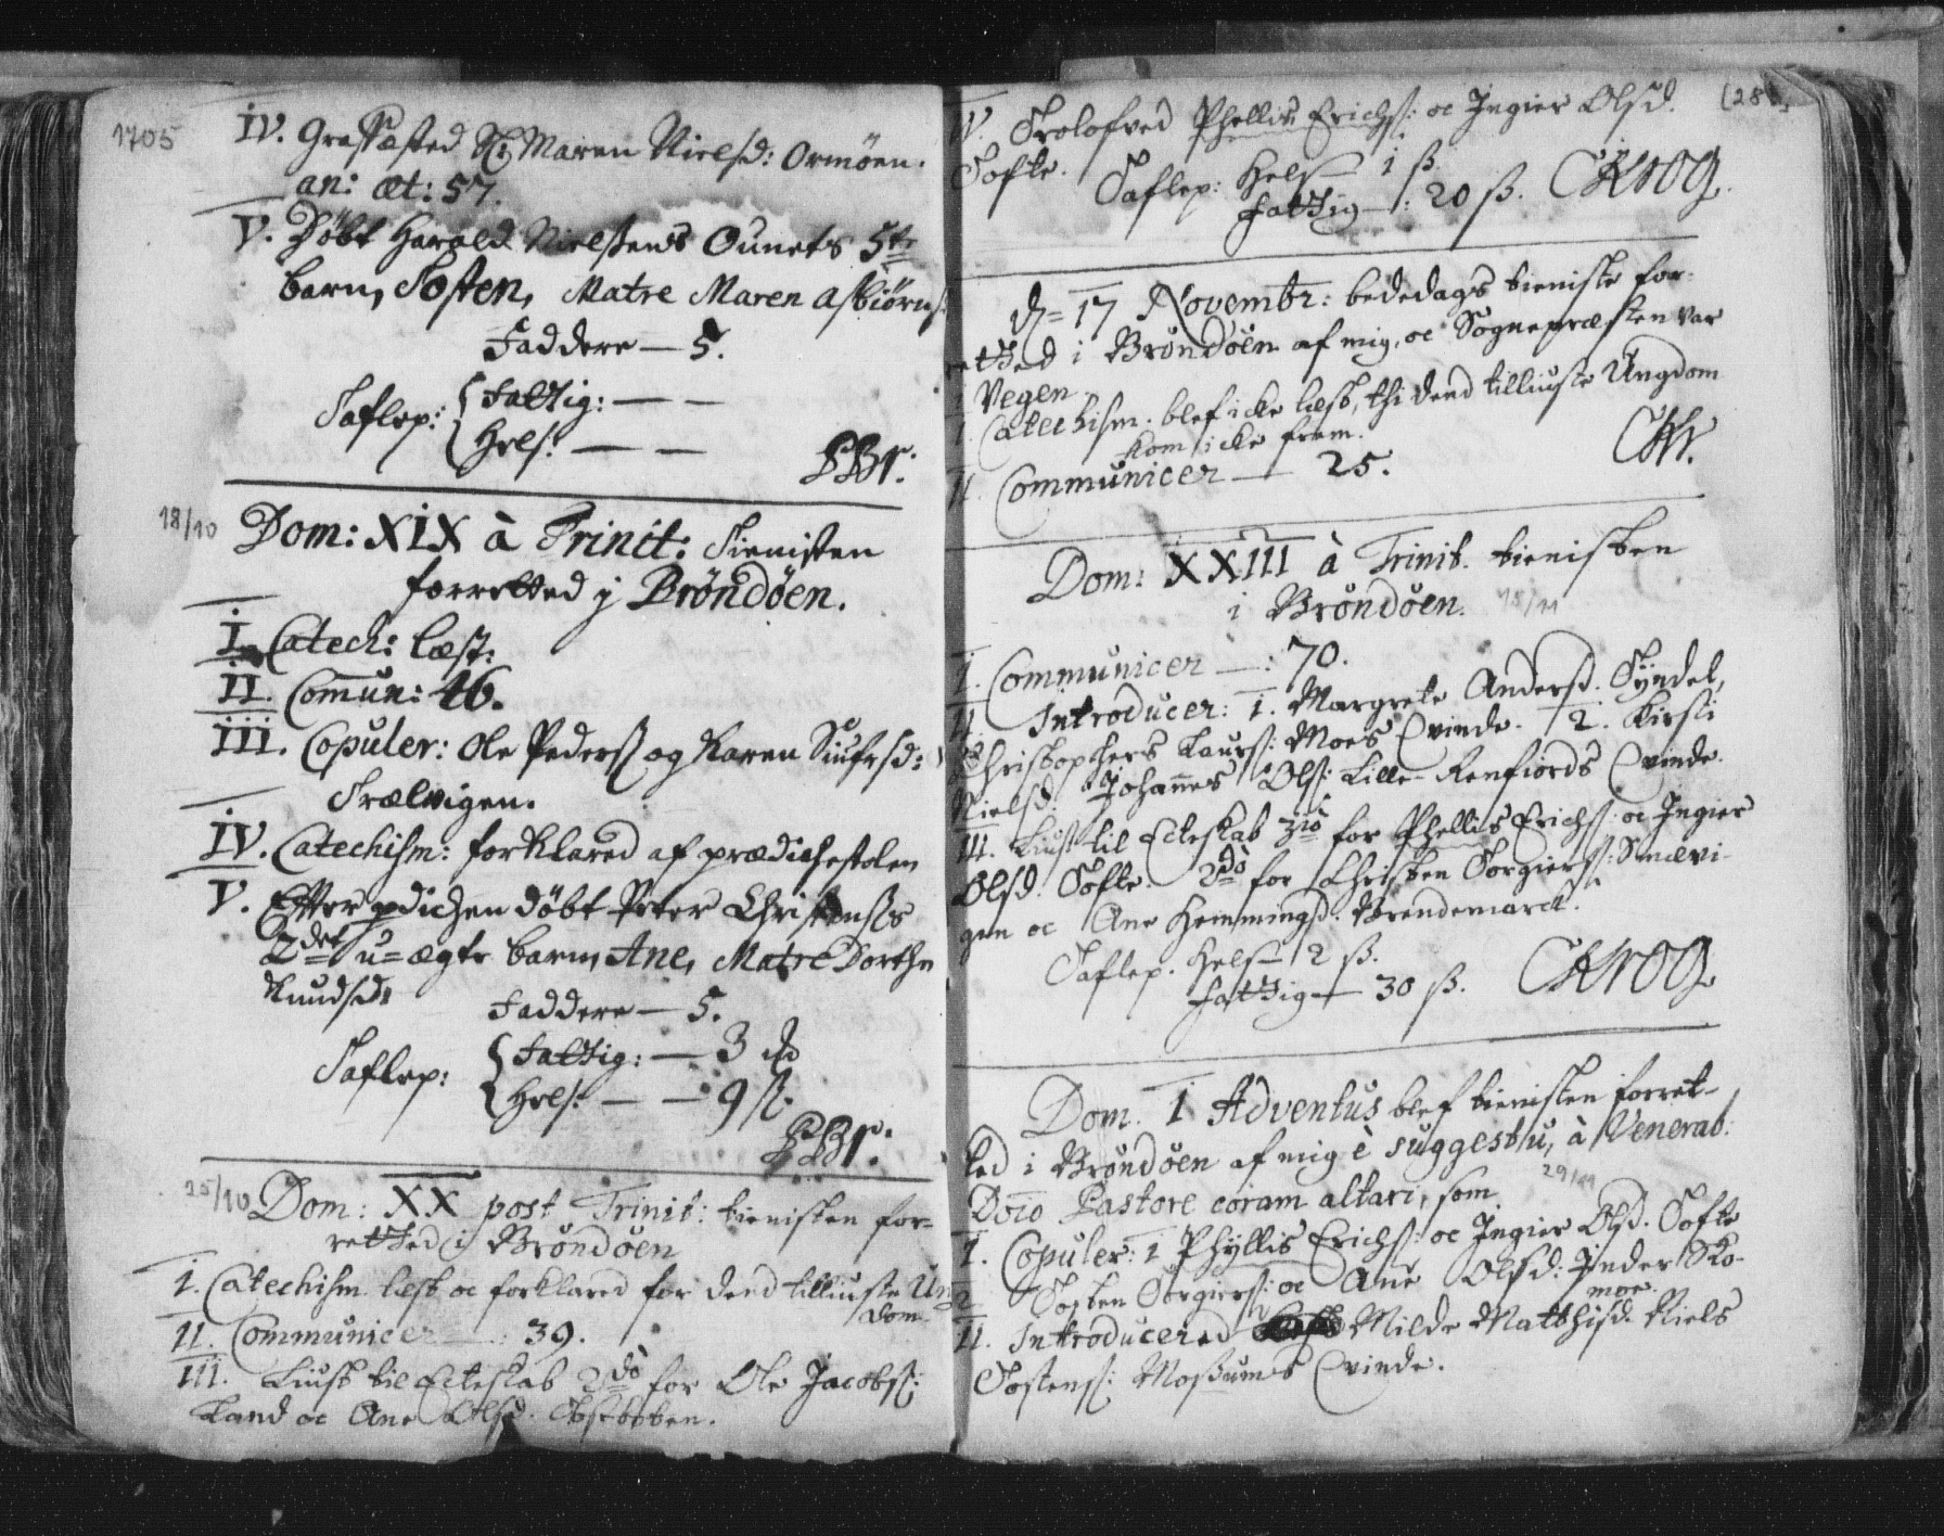 1705
IV. Grafæsted Sl: Maren Nielsd: Ormöen.
an: æt: 57.
V. Döbt Harald Nielsens Ounets 5te
barn, Tosten, Matre Maren Asbiörns
Faddere — 5.
Taflep: { Fattig: — —
Hvls: — —
PBr:
18/10
Dom: XIX à Trinit: Tienisten
forretted y Bröndöen.
I. Catech: læst:
II. Comun: 46.
III. Copuler: Ole Peders og Karen Siufrsd:
Trælvigen.
IV. Catechism: forklared af prædichestolen
V. Effter pdichen döbt Peter Christenss
2det u=ægte barn, Ane, Matre Dorthe
Knudsd:
Faddere — 5.
Taflep: { Fattig: — 3
Hvls: — — 9 ß.
PBr:
25/10
Dom: XX post Trinit: tienisten for=
retted i Bröndöen
I. Catechism læst oc forklared for dend tilliuste Ung
dom
II. Communicer — : 39.
III. Liust til Ecteskab 2do for Ole Jacobs:
Land oc Ane Olsd.
(28
IV. Trolofved Phellis Erichs: oc Ingier Olsd.
Tofte.
Taflep: Hels — 1 ß.
Fattig — : 20 ß. CKrog.
d= 17 Novembr: bededags tieniste for-
retted i Bröndöen af mig, oc Sognepræsten var
i Vegen
I. Catechism. blef icke læst, thi dend tilliuste Ungdom
kom icke frem.
II. Communicer — 25.
CKr.
Dom: XXIII à Trinit. tienisten
i Bröndöen. 15/11
I. Communicer — : 70.
II. Introducer: 1. Margrete Andersd. Tyndel,
Christophers Laurs: Moes Qvinde. 2. Kirsti
Nielsd. Johannes Ols: Lille-Renfiords Qvinde.
III. Liust til Ecteskab 3tiò for Phellis Erichs: oc Ingier
Olsd. Tofte. 2dò for Christen Torgierss: Smævi-
gen oc Ane Hemmingsd. Torendemarck.
Taflep. Hels — 12 ß.
Fattig — 30 ß. CKrog
Dom. 1 Adventus blef tienisten forret-
ted i Bröndöen af mig è suggestu, à Venerab:
Dnio Pastore coram altari, som 29/11
I. Copuler: 1 Phyllis Erichs: oc Ingier Olsd. Tofte
2 Tosten Torgierss: oc Ane Olsd: Inder Sko-
moe.
II. Introducered Milde Matthisd. Niels
Tostens: Moßums Qvinde.